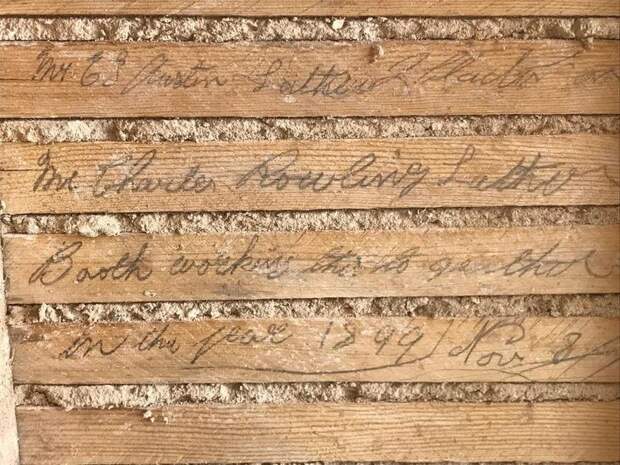 Mr Ed Austin Lather
Mr Charles Rowling Lather
Booth working together
in the year 1899 Nov 8